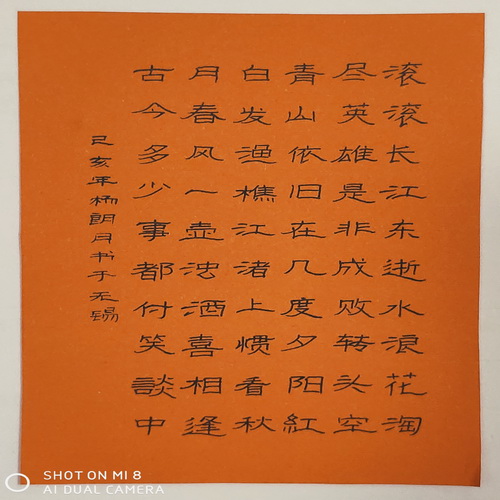 滚滚长江东逝水浪花淘
尽英雄是非成败转头空
青山依旧在几度夕阳红
白发渔樵江渚上惯看秋
月春风一壶浊酒喜相逢
古今多少事都付笑談中
己亥年杨朗月书于无锡
SHOT ON MI 8
AI DUAL CAMERA